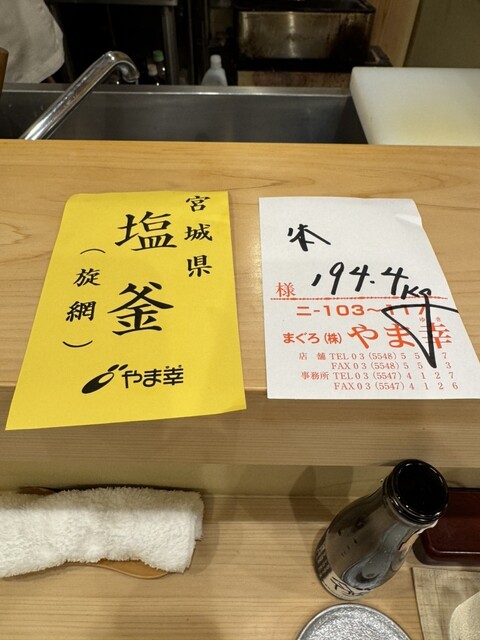 宮城県
塩釜
(旋網)
やま幸
様
194.4kg
ニ-103~117
まぐろ(株)やま幸
店舗 TEL 03(5548)5
FAX 03(5548)5
事務所 TEL 03(5547)4127
FAX 03(5547)4126